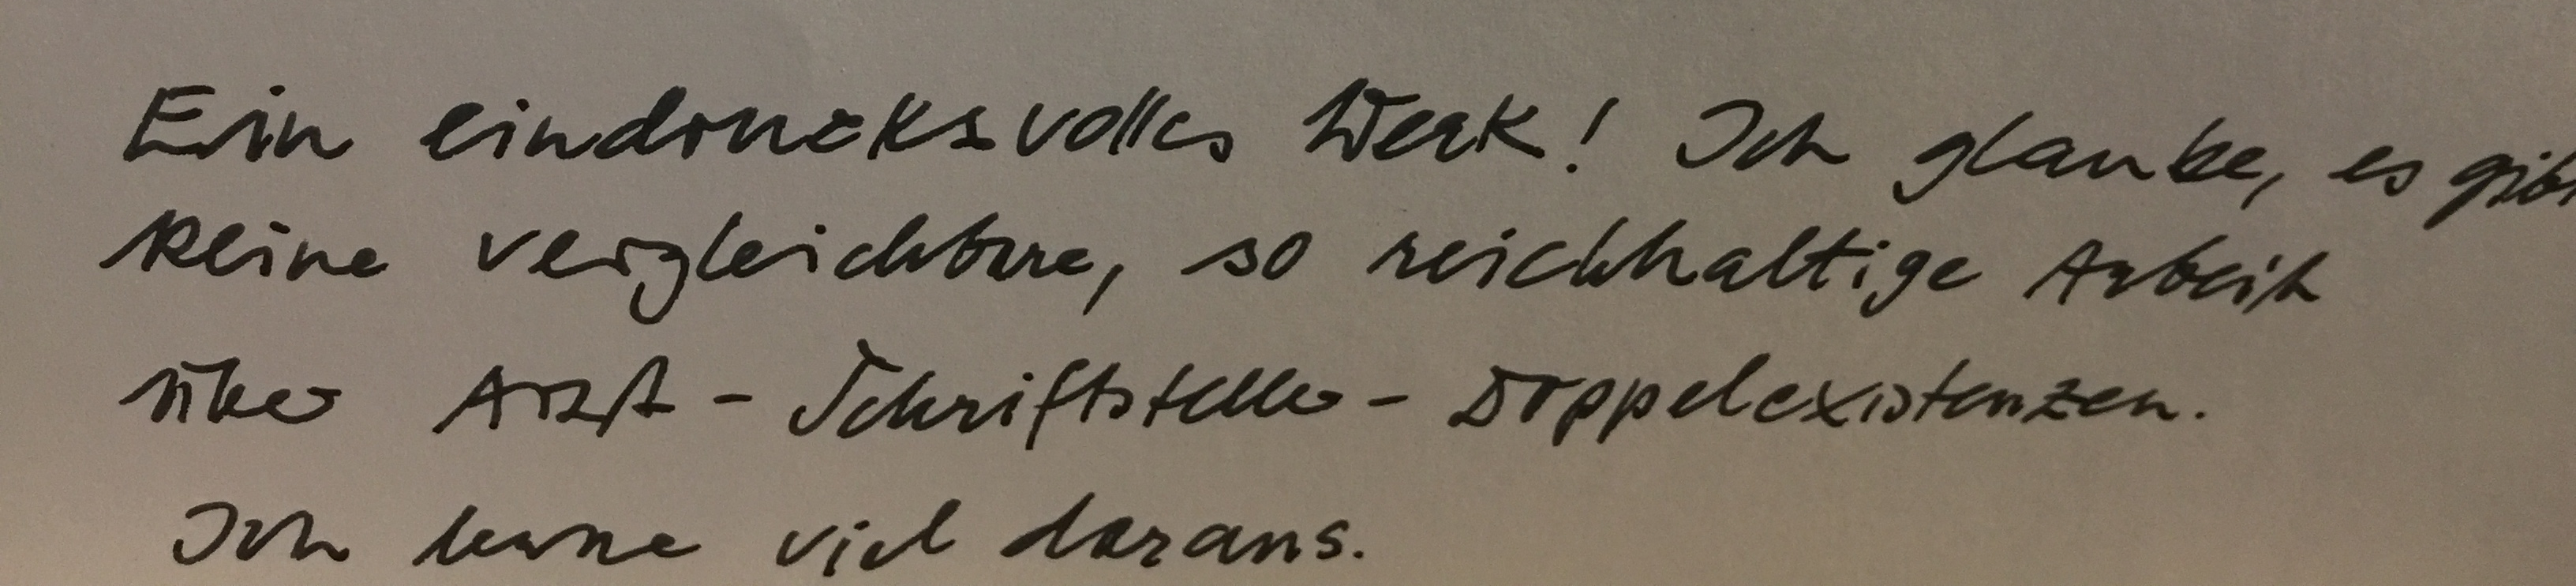 Ein eindrucksvolles Werk! Ich glaube, es gibt
keine vergleichbare, so reichhaltige Arbeit
über Arzt-Schriftsteller-Doppelexistenzen.
Ich lerne viel daraus.